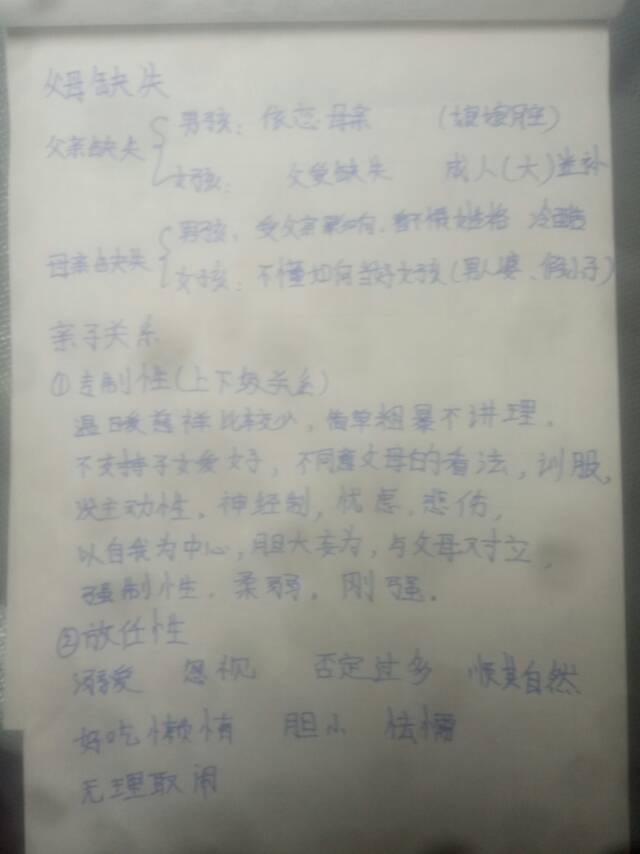 父母缺失
父亲缺失 男孩：依恋母亲
女孩： 父爱缺失 成人(大)
母亲缺失 男孩：受父亲影响, 性格 冷酷
女孩：不懂如何当好女孩(男人婆、假小子)
亲子关系
①专制性(上下级关系)
温暖慈祥比较少, 简单粗暴不讲理.
不支持子女爱好, 不同意父母的看法, 训服,
没主动性. 神经制, 忧虑. 悲伤,
以自我为中心, 胆大妄为, 与父母对立,
强制性. 柔弱. 刚强.
②放任性
溺爱 忽视 否定过多 顺其自然
好吃懒惰 胆小 怯懦
无理取闹